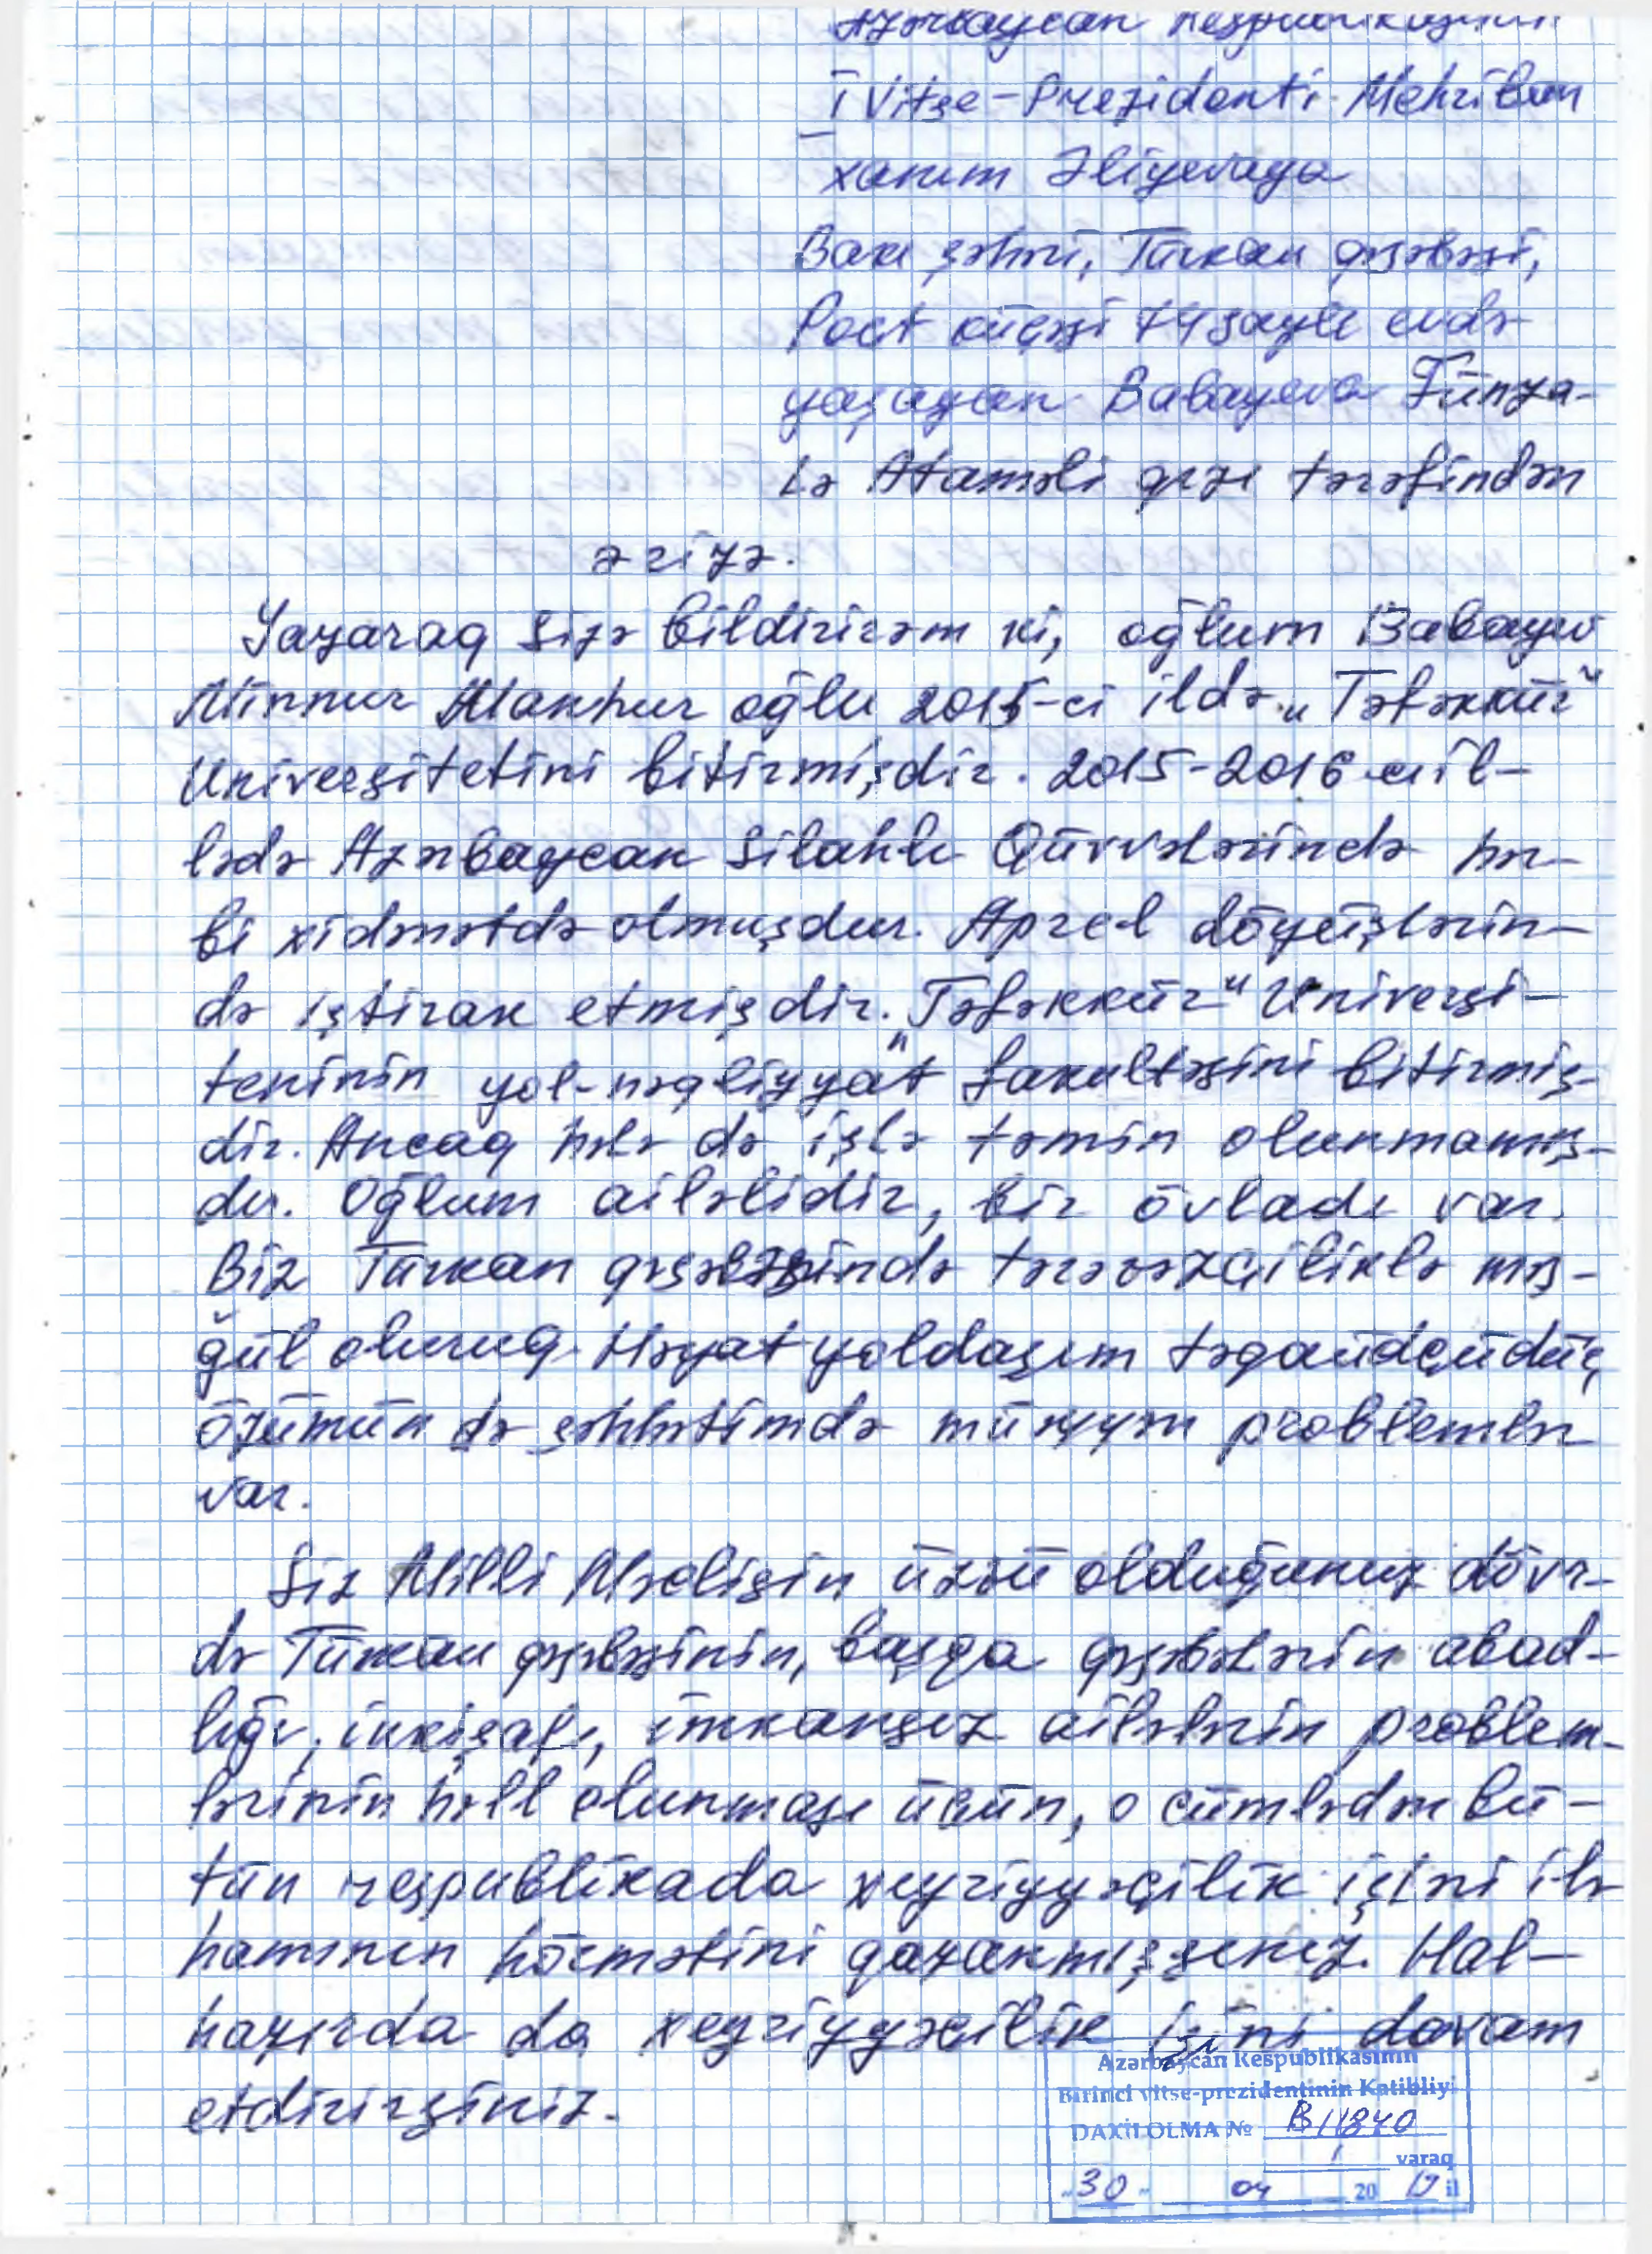 Azərbaycan Respublikasının
I Vitse-Prezidenti Mehriban
xanım Əliyevaya
Bakı şəhəri, Türkan qəsəbəsi,
Poçt küçəsi 74 saylı evdə
yaşayan Babayeva Fünza-
lə Ataməli qızı tərəfindən
ərizə.
Yazaraq Sizə bildirirəm ki, oğlum Babayev
oğlu 2015-ci ildə „Təfəkkür“
Universitetini bitirmişdir. 2015-2016 cı il-
lədə Azərbaycan Silahlı Qüvvələrində hər-
bi xidmətdə olmuşdur. Aprel döyüşlərin-
də iştirak etmişdir. „Təfəkkür“ Universi-
teninin yol-nəqliyyat fakultəsini bitirmiş-
dir. Ancaq hələ də işlə təmin olunmamış-
dır. Oğlum ailəlidir, bir övladı var.
Biz Türkan qəsəbəsində tərəvəzçiliklə məş-
ğul oluruq. Həyat yoldaşım təqaüdçüdür,
özümün də səhhətimdə müəyyən problemlər
var.
Siz Milli Məclisin üzvü olduğunuz dövr-
də Türkan qəsəbəsinin, başqa qəsəbələrin abad-
lığı, inkişafı, imkansız ailələrin problem-
lərinin həll olunması üçün, o cümlədən bü-
tün respublikada xeyriyyəçilik işini ilə
hamının hörmətini qazanmışsınız. Hal-
hazırda da xeyriyyəçilik işini davam
etdirirsiniz.
Azərbaycan Respublikasının
Birinci vitse-prezidentinin Katibliyi
DAXİL OLMA № B11840
1 vərəq
„30“ 04 2019 il